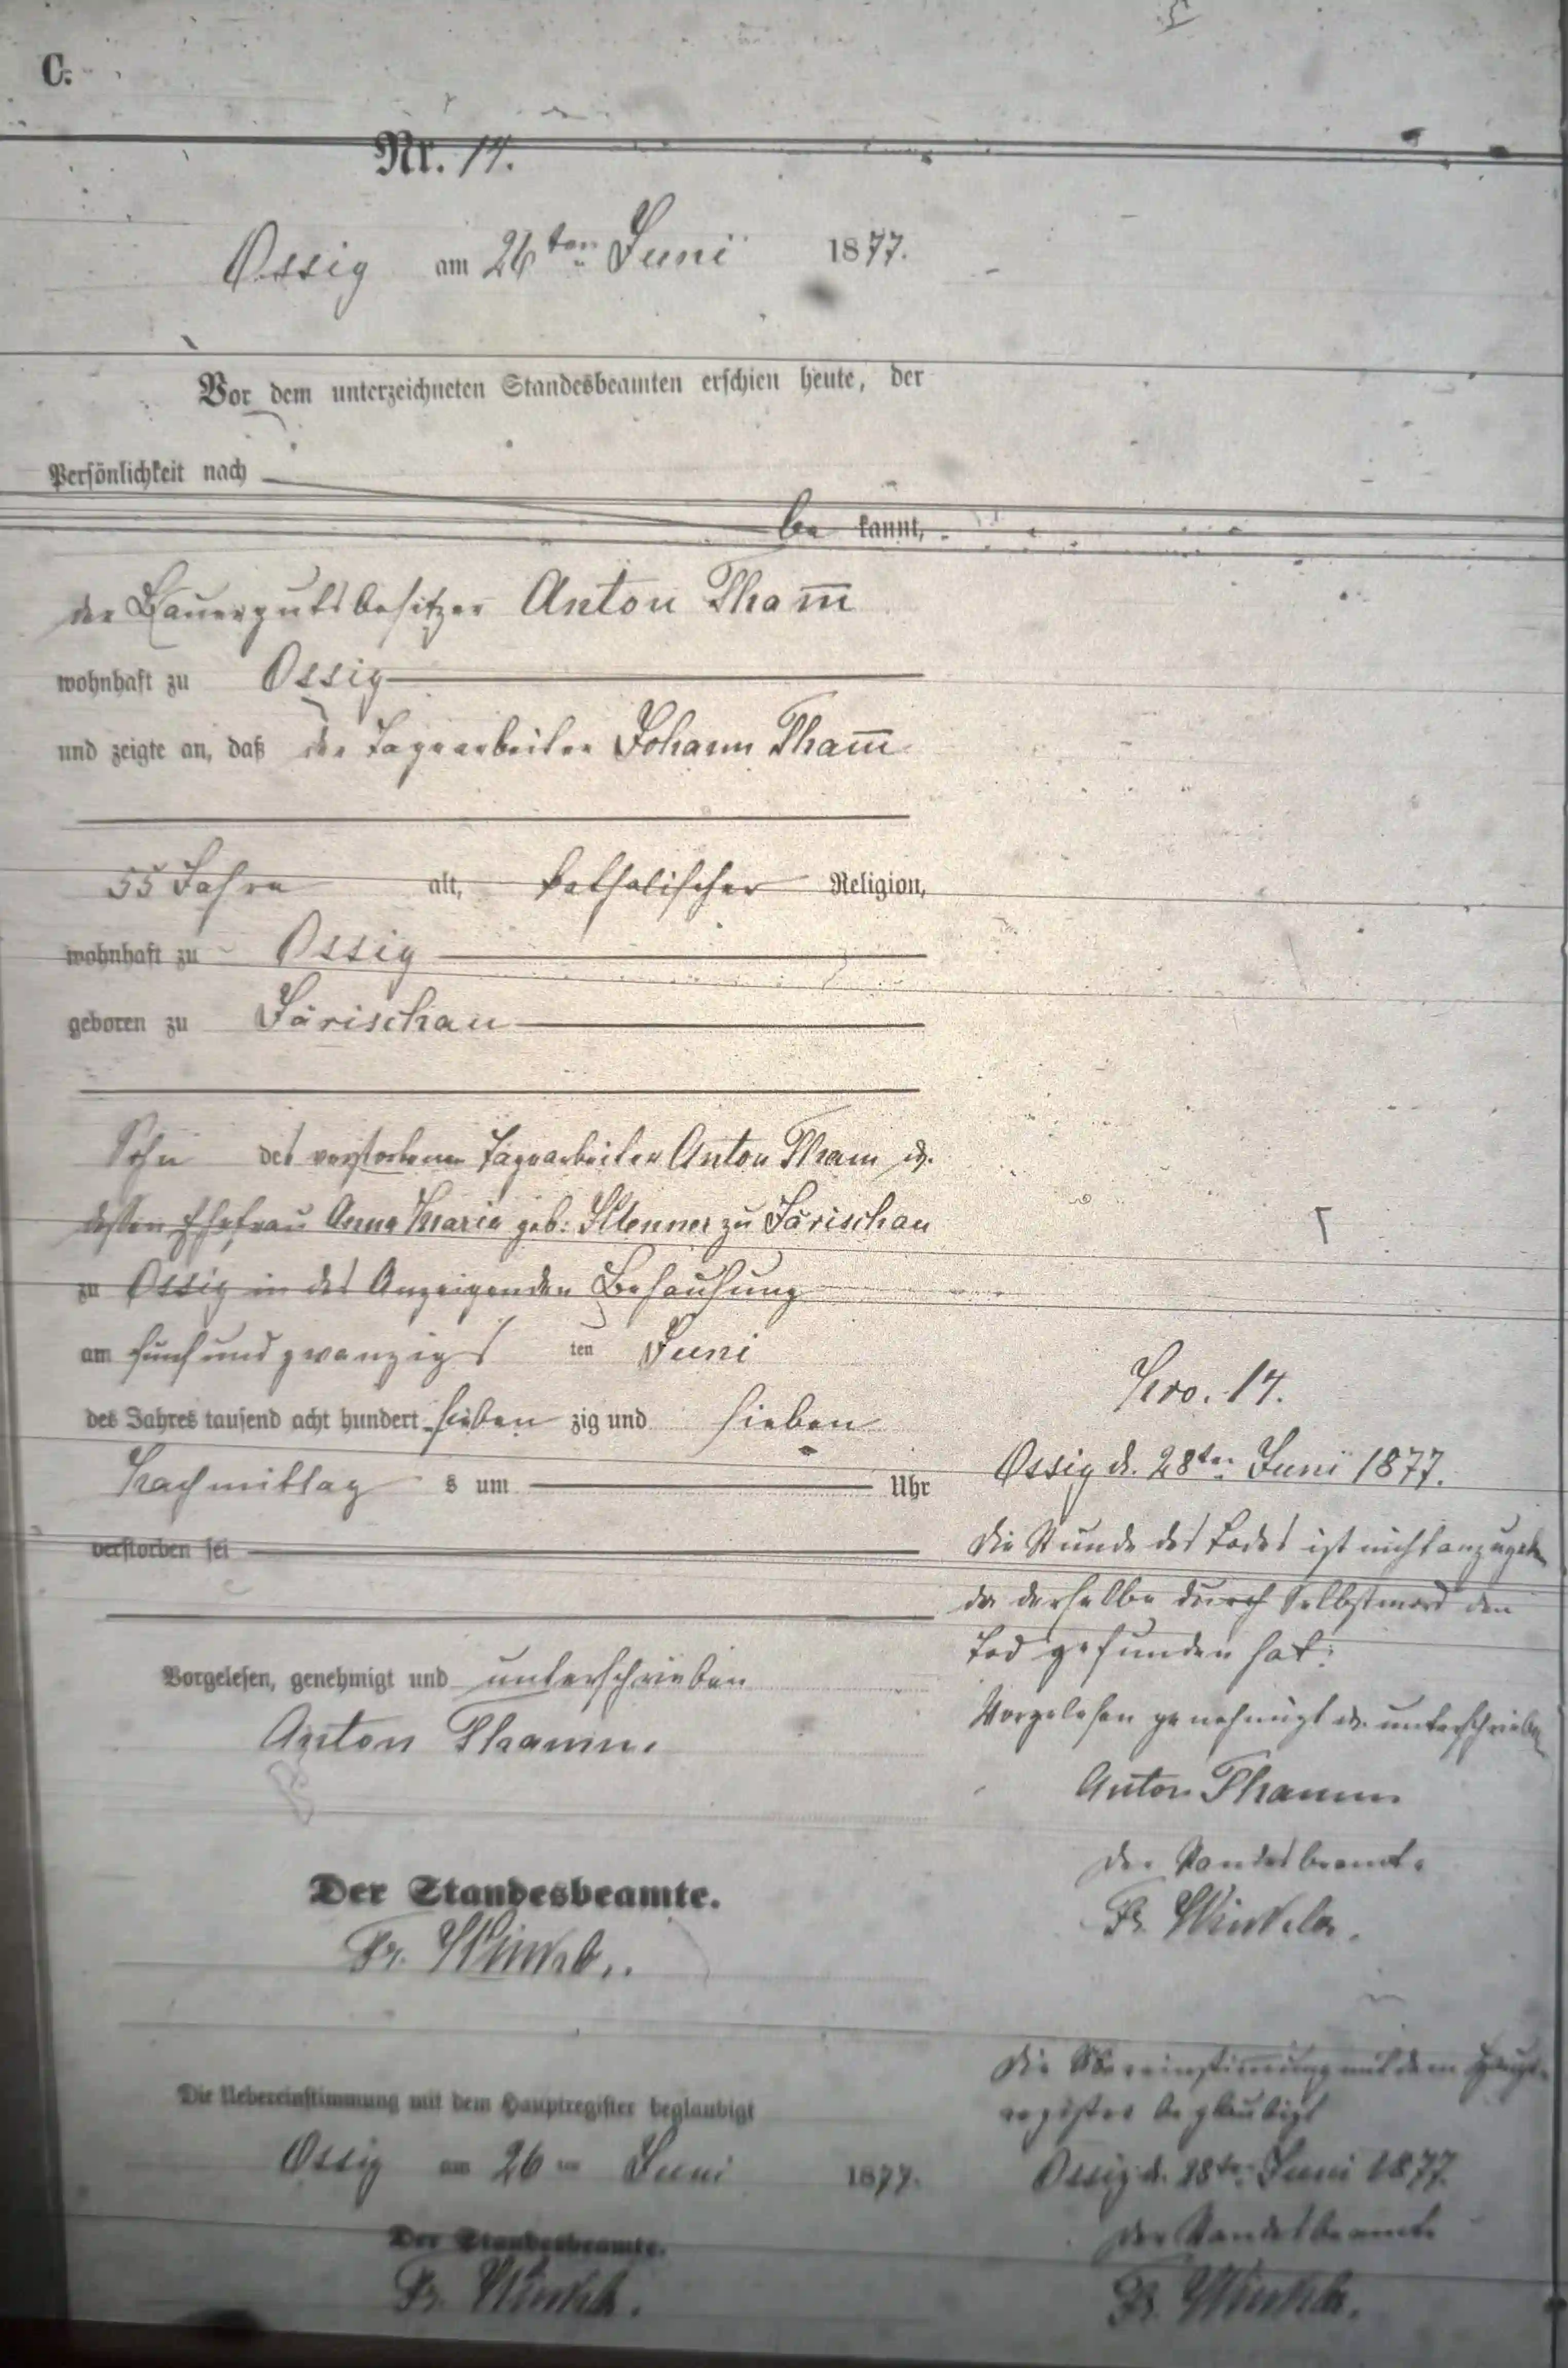 C.
Nr. 14.
Ossig am 26ten Juni 1877.
Vor dem unterzeichneten Standesbeamten erschien heute, der
Persönlichkeit nach
be kannt,
der Bauergutsbesitzer Anton Tham̅
wohnhaft zu Ossig
und zeigte an, daß der Tagearbeiter Johann Tham̅
55 Jahre alt, katholischer Religion,
wohnhaft zu Ossig
geboren zu Järischau
Sohn des verstorbenen Tagearbeiter Anton Tham u.
dessen Ehefrau Anna Maria geb: Klenner zu Järischau
zu Ossig in des Anzeigenden Behausung
am fünf und zwanzigs ten Juni
des Jahres tausend acht hundert sieben zig und sieben
Nachmittag s um Uhr
verstorben sei
Vorgelesen, genehmigt und unterschrieben
Anton Thamm.
Der Standesbeamte.
Fr. Winkler.
Die Uebereinstimmung mit dem Hauptregister beglaubigt
Ossig am 26 ten Juni 1877.
Der Standesbeamte.
Fr. Winkler.
Nro. 14.
Ossig d. 28ten Juni 1877.
Die Stunde des Todes ist nicht anzugeben
da derselbe durch Selbstmord den
Tod gefunden hat.
Vorgelesen genehmigt u. unterschrieben
Anton Thamm
Der Standesbeamte
Fr. Winkler.
Die Uebereinstimmung mit dem Haupt-
register beglaubigt
Ossig d. 28ten Juni 1877.
Der Standesbeamte
Fr. Winkler.